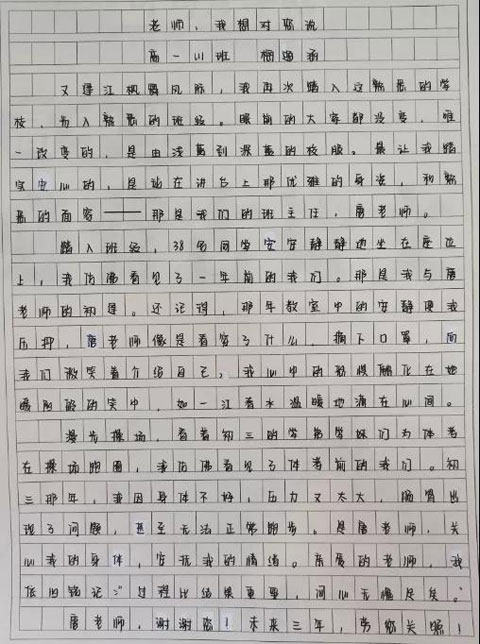 老师，我想对您说
高一川班
又逢江枫飘凤际，我再次踏入这熟悉的学
校，步入熟悉的班级。眼前的大家都没变，唯
一改变的，是由浅蓝到深蓝的校服。最让我踏
实安心的，是站在讲台上那优雅的身姿，和熟
悉的面容——那是我们的班主任，唐老师。
踏入班级，38名同学安安静静地坐在座位
上，我仿佛看见了一年前的我们。那是我与唐
老师的初逢。还记得，那年教室中的安静使我
压抑，唐老师像是看穿了什么，摘下口罩，向
我们微笑着介绍自己，我心中的融化在她
暖的笑中，如一江春水温暖地滴在心间。
漫步操场，看着初三的学弟学妹们为体考
在操场跑圈，我仿佛看见了体考前的我们。初
三那年，我因身体不好，压力又太大，肠胃出
现了问题，甚至无法正常跑步。是唐老师，关
心我的身体，安抚我的情绪。亲爱的老师，我
依旧铭记："过程比结果重要，问心无愧足矣。"
唐老师，谢谢您！未来三年，劳您关照！